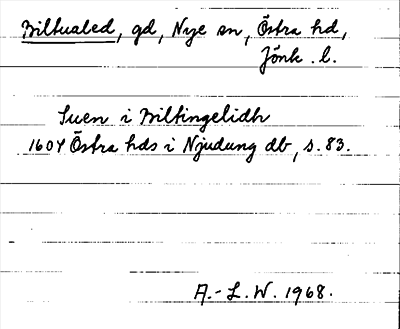 Biltualed, gd, Nye sn, Östra hd,
Jönk. l.
Suen i Biltingelidh
1604 Östra hds i Njudung db, s. 83.
A.-L.W. 1968.